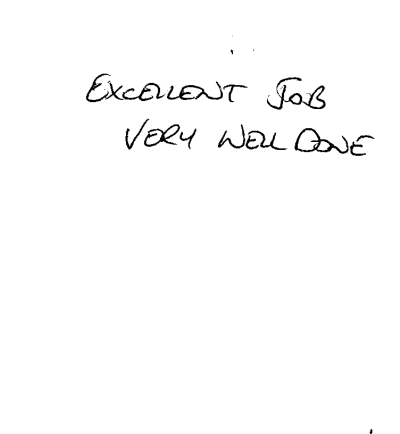 EXCELLENT JOB
VERY WELL DONE